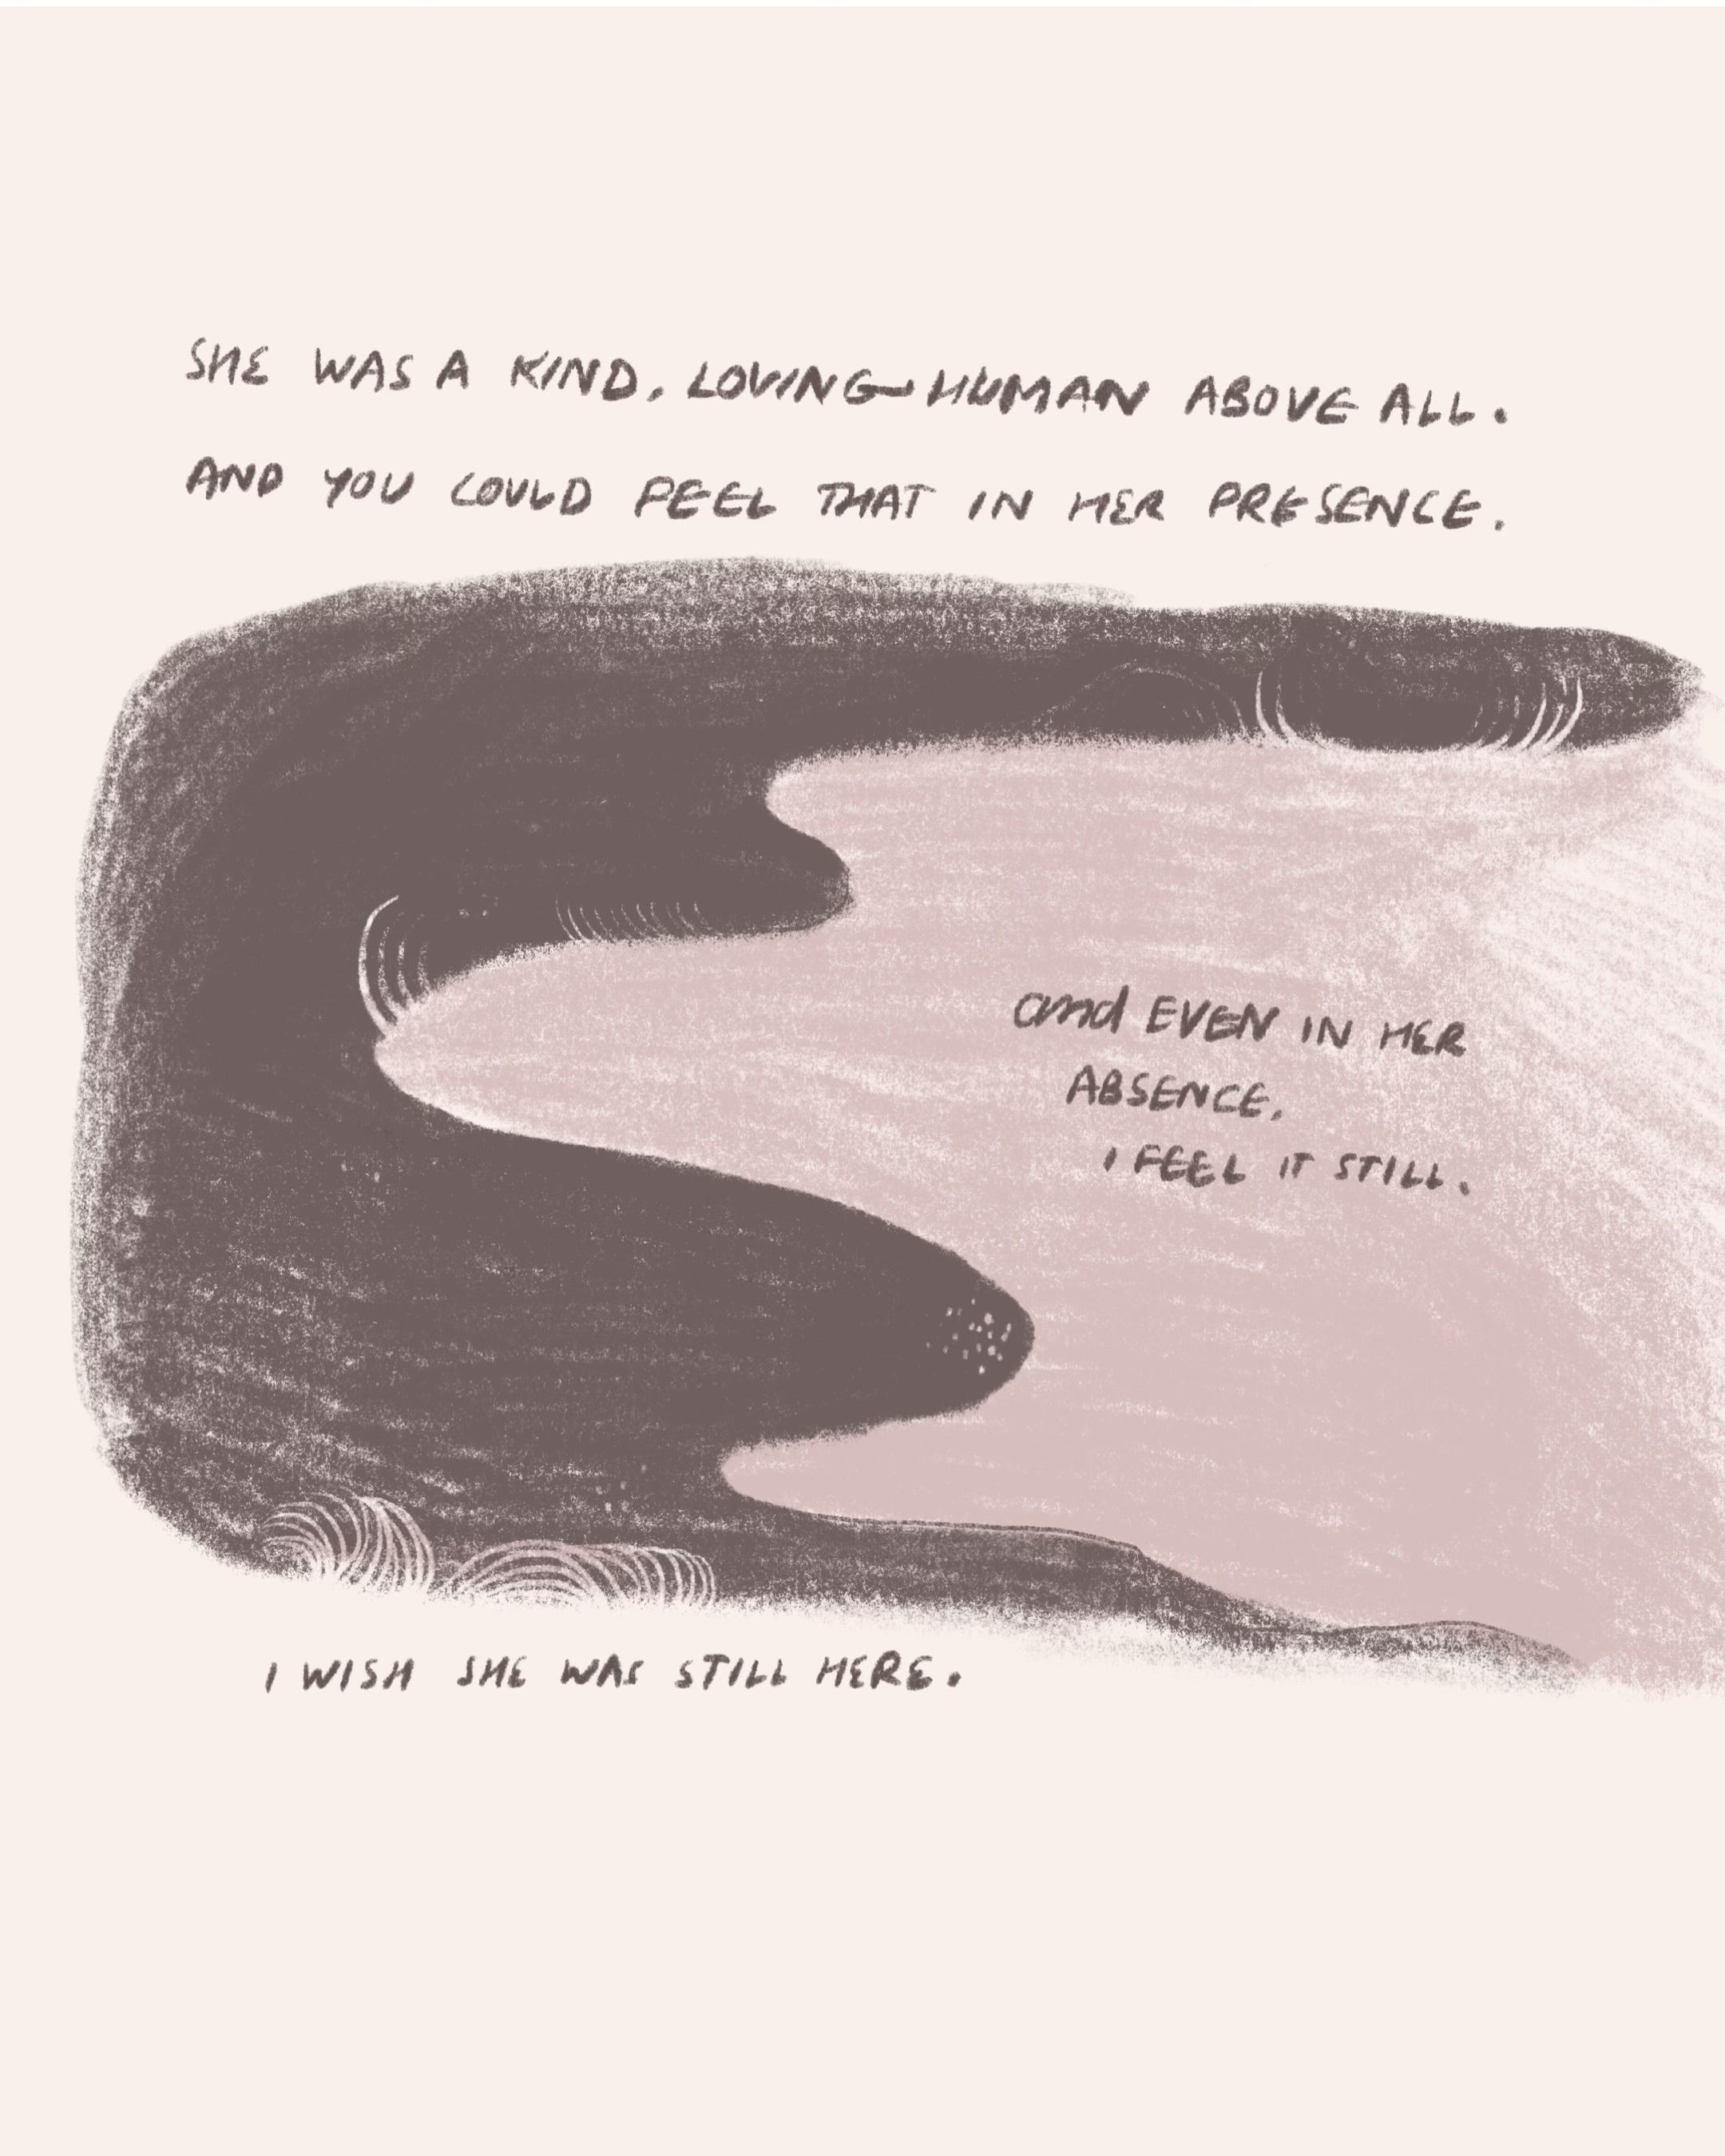 SHE WAS A KIND, LOVING HUMAN ABOVE ALL.
AND YOU COULD FEEL THAT IN HER PRESENCE.
and EVEN IN HER
ABSENCE,
I FEEL IT STILL.
I WISH SHE WAS STILL HERE.